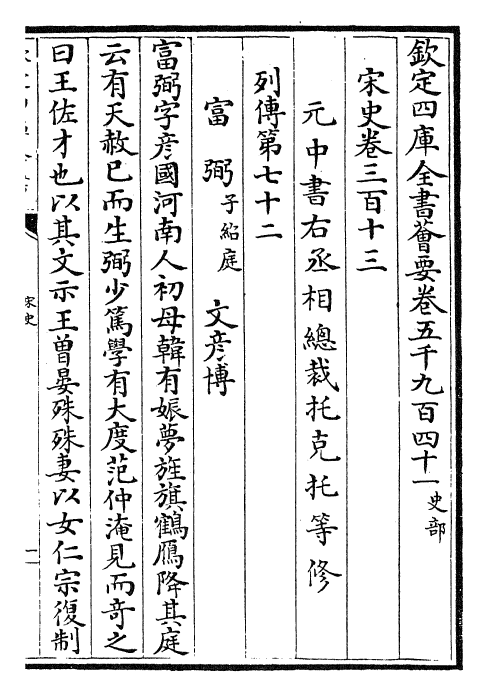 欽定四庫全書薈要卷五千九百四十一史部
宋史卷三百十三
元中書右丞相總裁托克托等修
列傳第七十二
富弼子紹庭 文彥博
富弼字彥國河南人初母韓有娠夢旌旗鶴鴈降其庭
云有天赦已而生弼少篤學有大度范仲淹見而竒之
曰王佐才也以其文示王曾晏殊殊妻以女仁宗復制
宋史
一